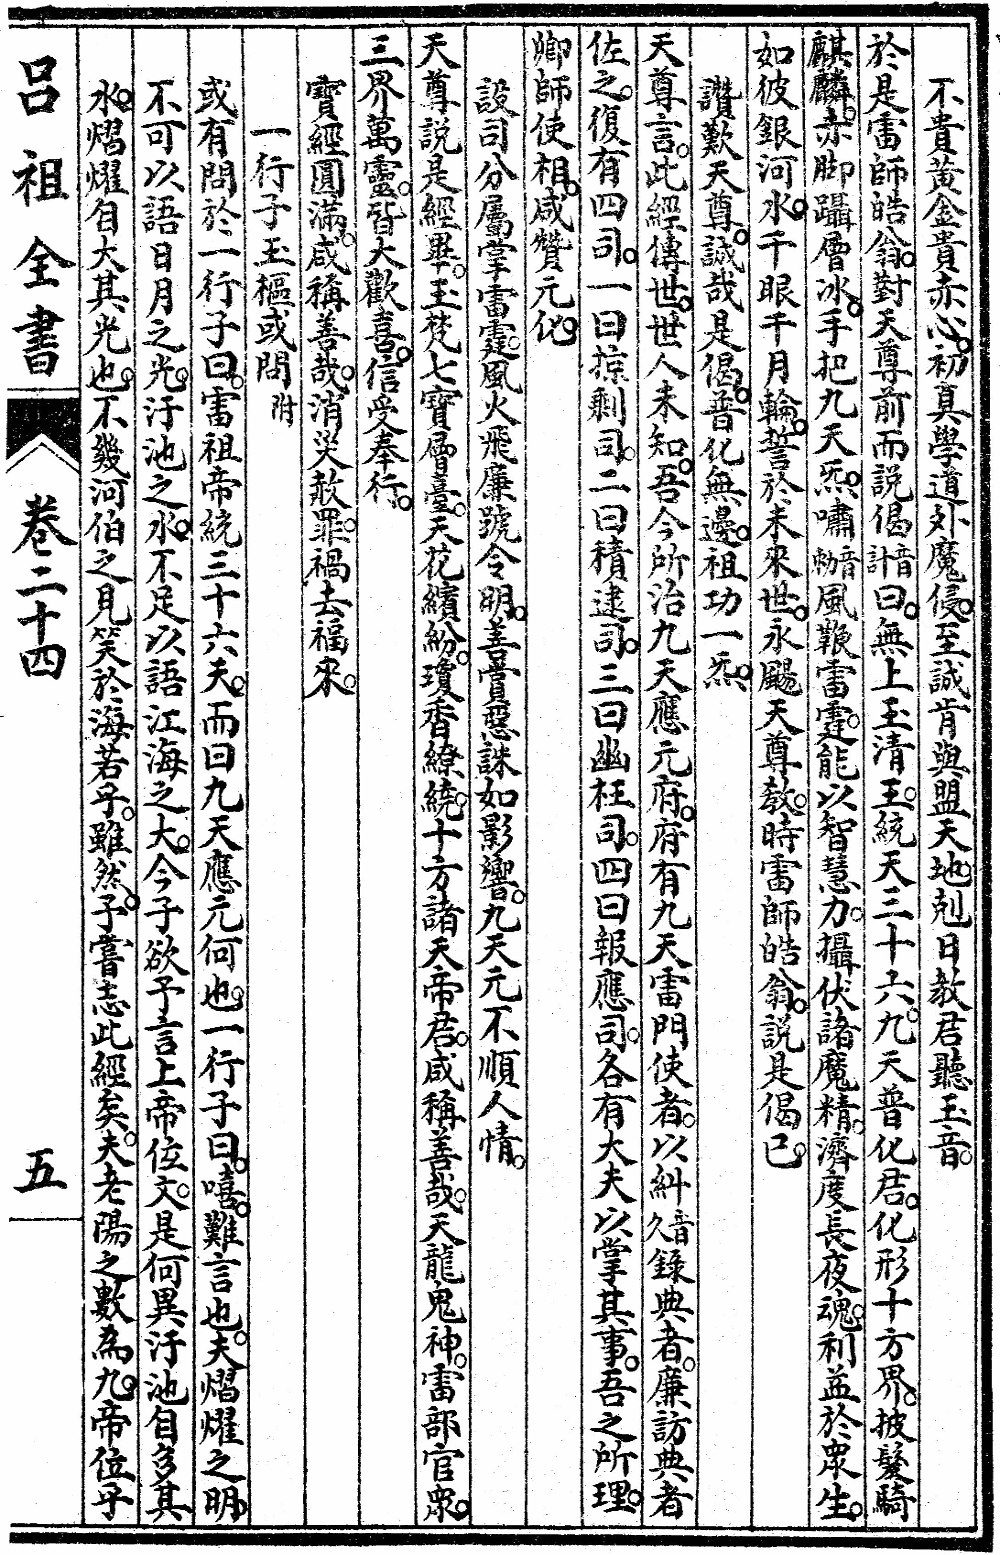 不貴黃金貴赤心。初真學道外魔侵。至誠肯與盟天地。剋日教君聽玉音。
於是雷師皓翁。對天尊前而說偈音計曰。無上玉清王。統天三十六。九天普化君。化形十方界。披髮騎
麒麟。赤脚躡層冰。手把九天炁。嘯音勅風鞭雷霆。能以智慧力。攝伏諸魔精。濟度長夜魂。利益於衆生。
如彼銀河水。千眼千月輪。誓於未來世。永颺天尊敎。時雷師皓翁。說是偈已。
讚歎天尊。誠哉是偈。普化無邊。祖功一炁。
天尊言。此經傳世。世人未知。吾今所治九天應元府。府有九天雷門使者。以糾音久錄典者。廉訪典者
佐之。復有四司。一曰掠剩司。二曰積逮司。三曰幽枉司。四曰報應司。各有大夫以掌其事。吾之所理。
卿師使相。咸贊元化。
設司分屬掌雷霆。風火飛廉號令明。善賞惡誅如影響。九天元不順人情。
天尊說是經畢。玉梵七寶層臺。天花繽紛。瓊香繚繞。十方諸天帝君。咸稱善哉。天龍鬼神。雷部官衆。
三界萬靈。皆大歡喜。信受奉行。
寶經圓滿。咸稱善哉。消災赦罪。禍去福來。
一行子玉樞或問附
或有問於一行子曰。雷祖帝統三十六天。而曰九天應元何也。一行子曰。嘻。難言也。夫熠燿之明。
不可以語日月之光。汙池之水。不足以語江海之大。今子欲予言上帝位文。是何異汙池自多其
水。熠燿自大其光也。不幾河伯之見笑於海若乎。雖然。予嘗志此經矣。夫老陽之數為九。帝位乎
呂祖全書
卷二十四
五